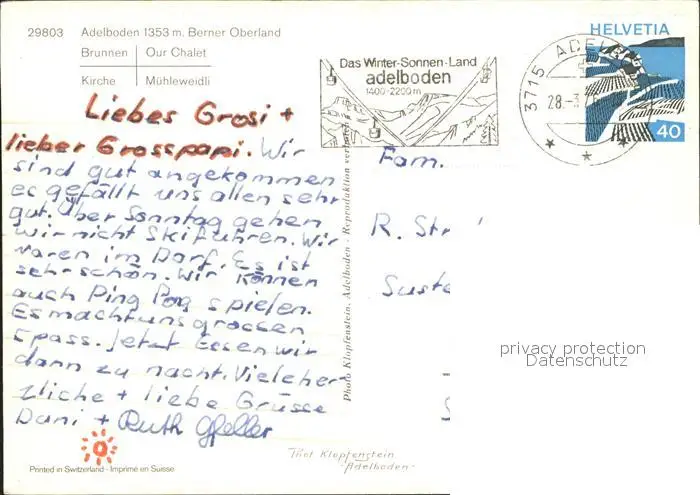 29803 Adelboden 1353 m. Berner Oberland
Brunnen Our Chalet
Kirche Mühleweidli
Das Winter-Sonnen-Land
adelboden
1400-2200m
3715 ADEL
28.-3
HELVETIA
40
Liebes Grosi +
lieber Grosspapi. Wir
sind gut angekommen
es gefällt uns allen sehr
gut. Über Sonntag gehen
wir nicht Skifahren. Wir
waren im Dorf. Es ist
sehr schön. Wir können
auch Ping Pong spielen.
Es macht uns grossen
Spass. Jetzt Essen wir
dann zu nacht. Viele her
zliche + liebe Grüsse
Dani + Ruth Gfeller
Fam.
R. Str
Suste
Photo Klopfenstein, Adelboden - Reproduktion verboten
privacy protection
Datenschutz
Phot Klopfenstein
-Adelboden-
Printed in Switzerland - Imprimé en Suisse